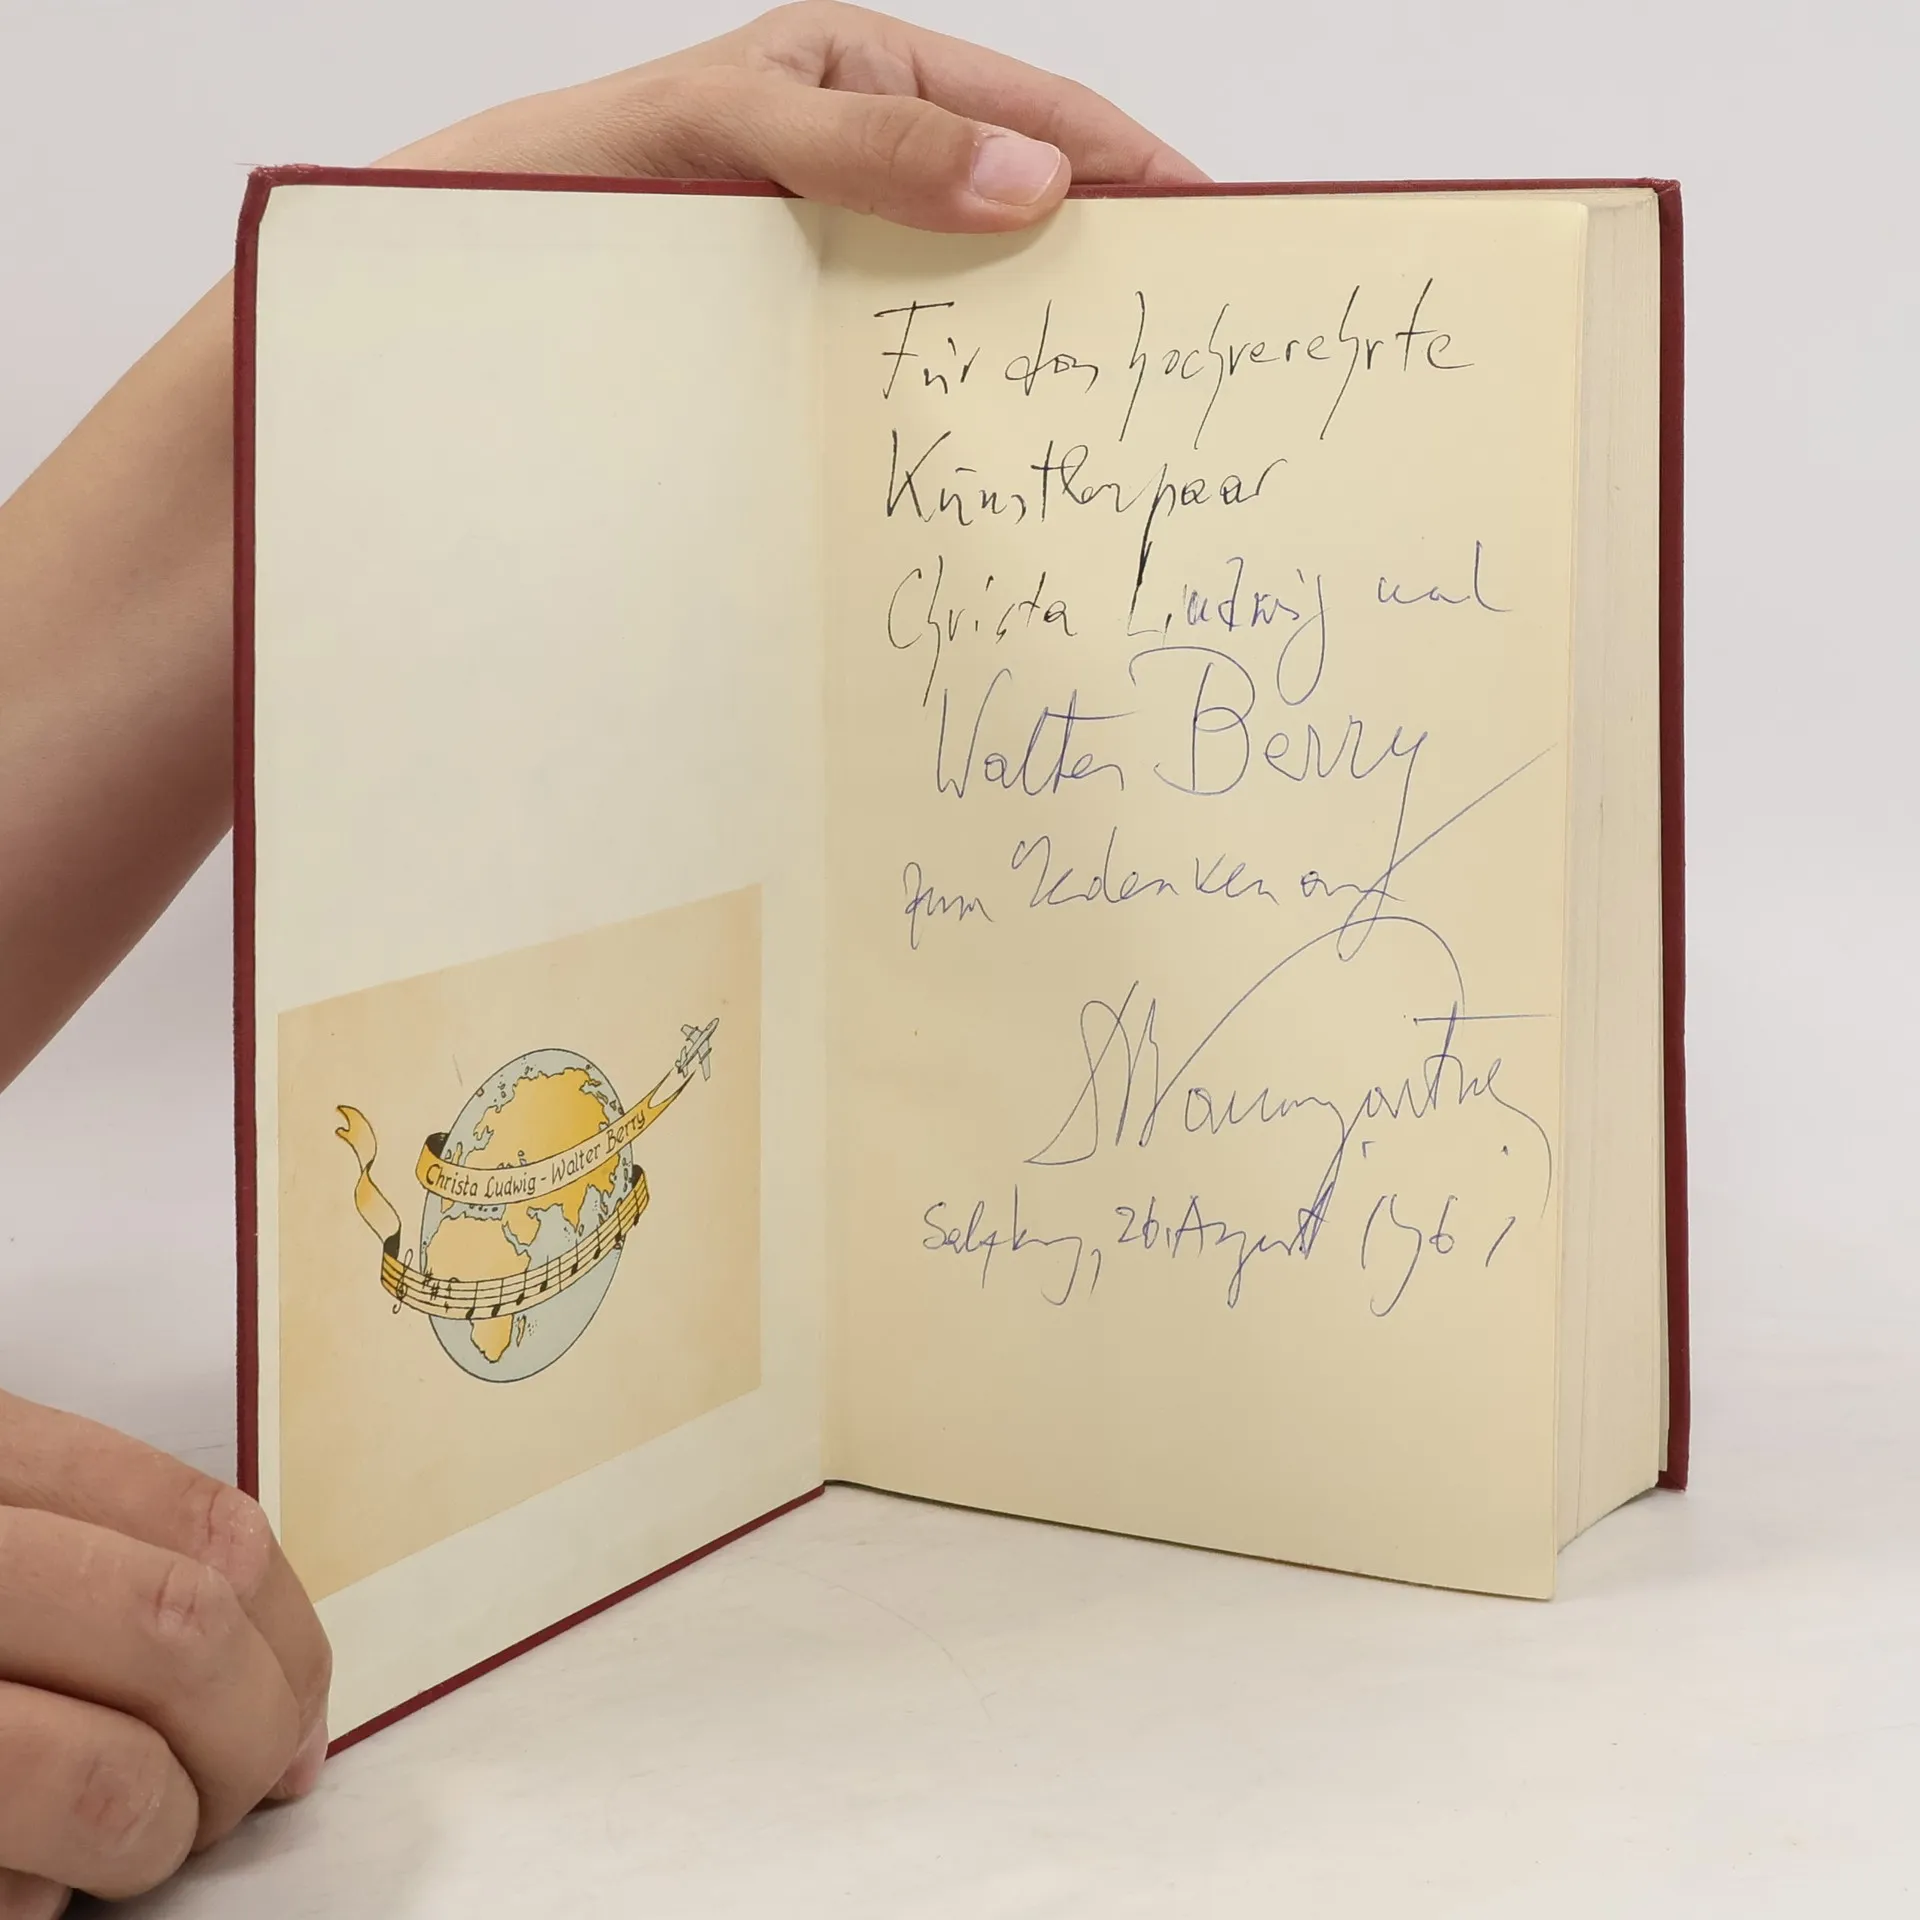 Christa Ludwig - Walter Berry
Für das hochverehrte
Künstlerpaar
Christa Ludwig und
Walter Berry
zum Gedenken an
Baumgartner
Salzburg, 26. August 1961